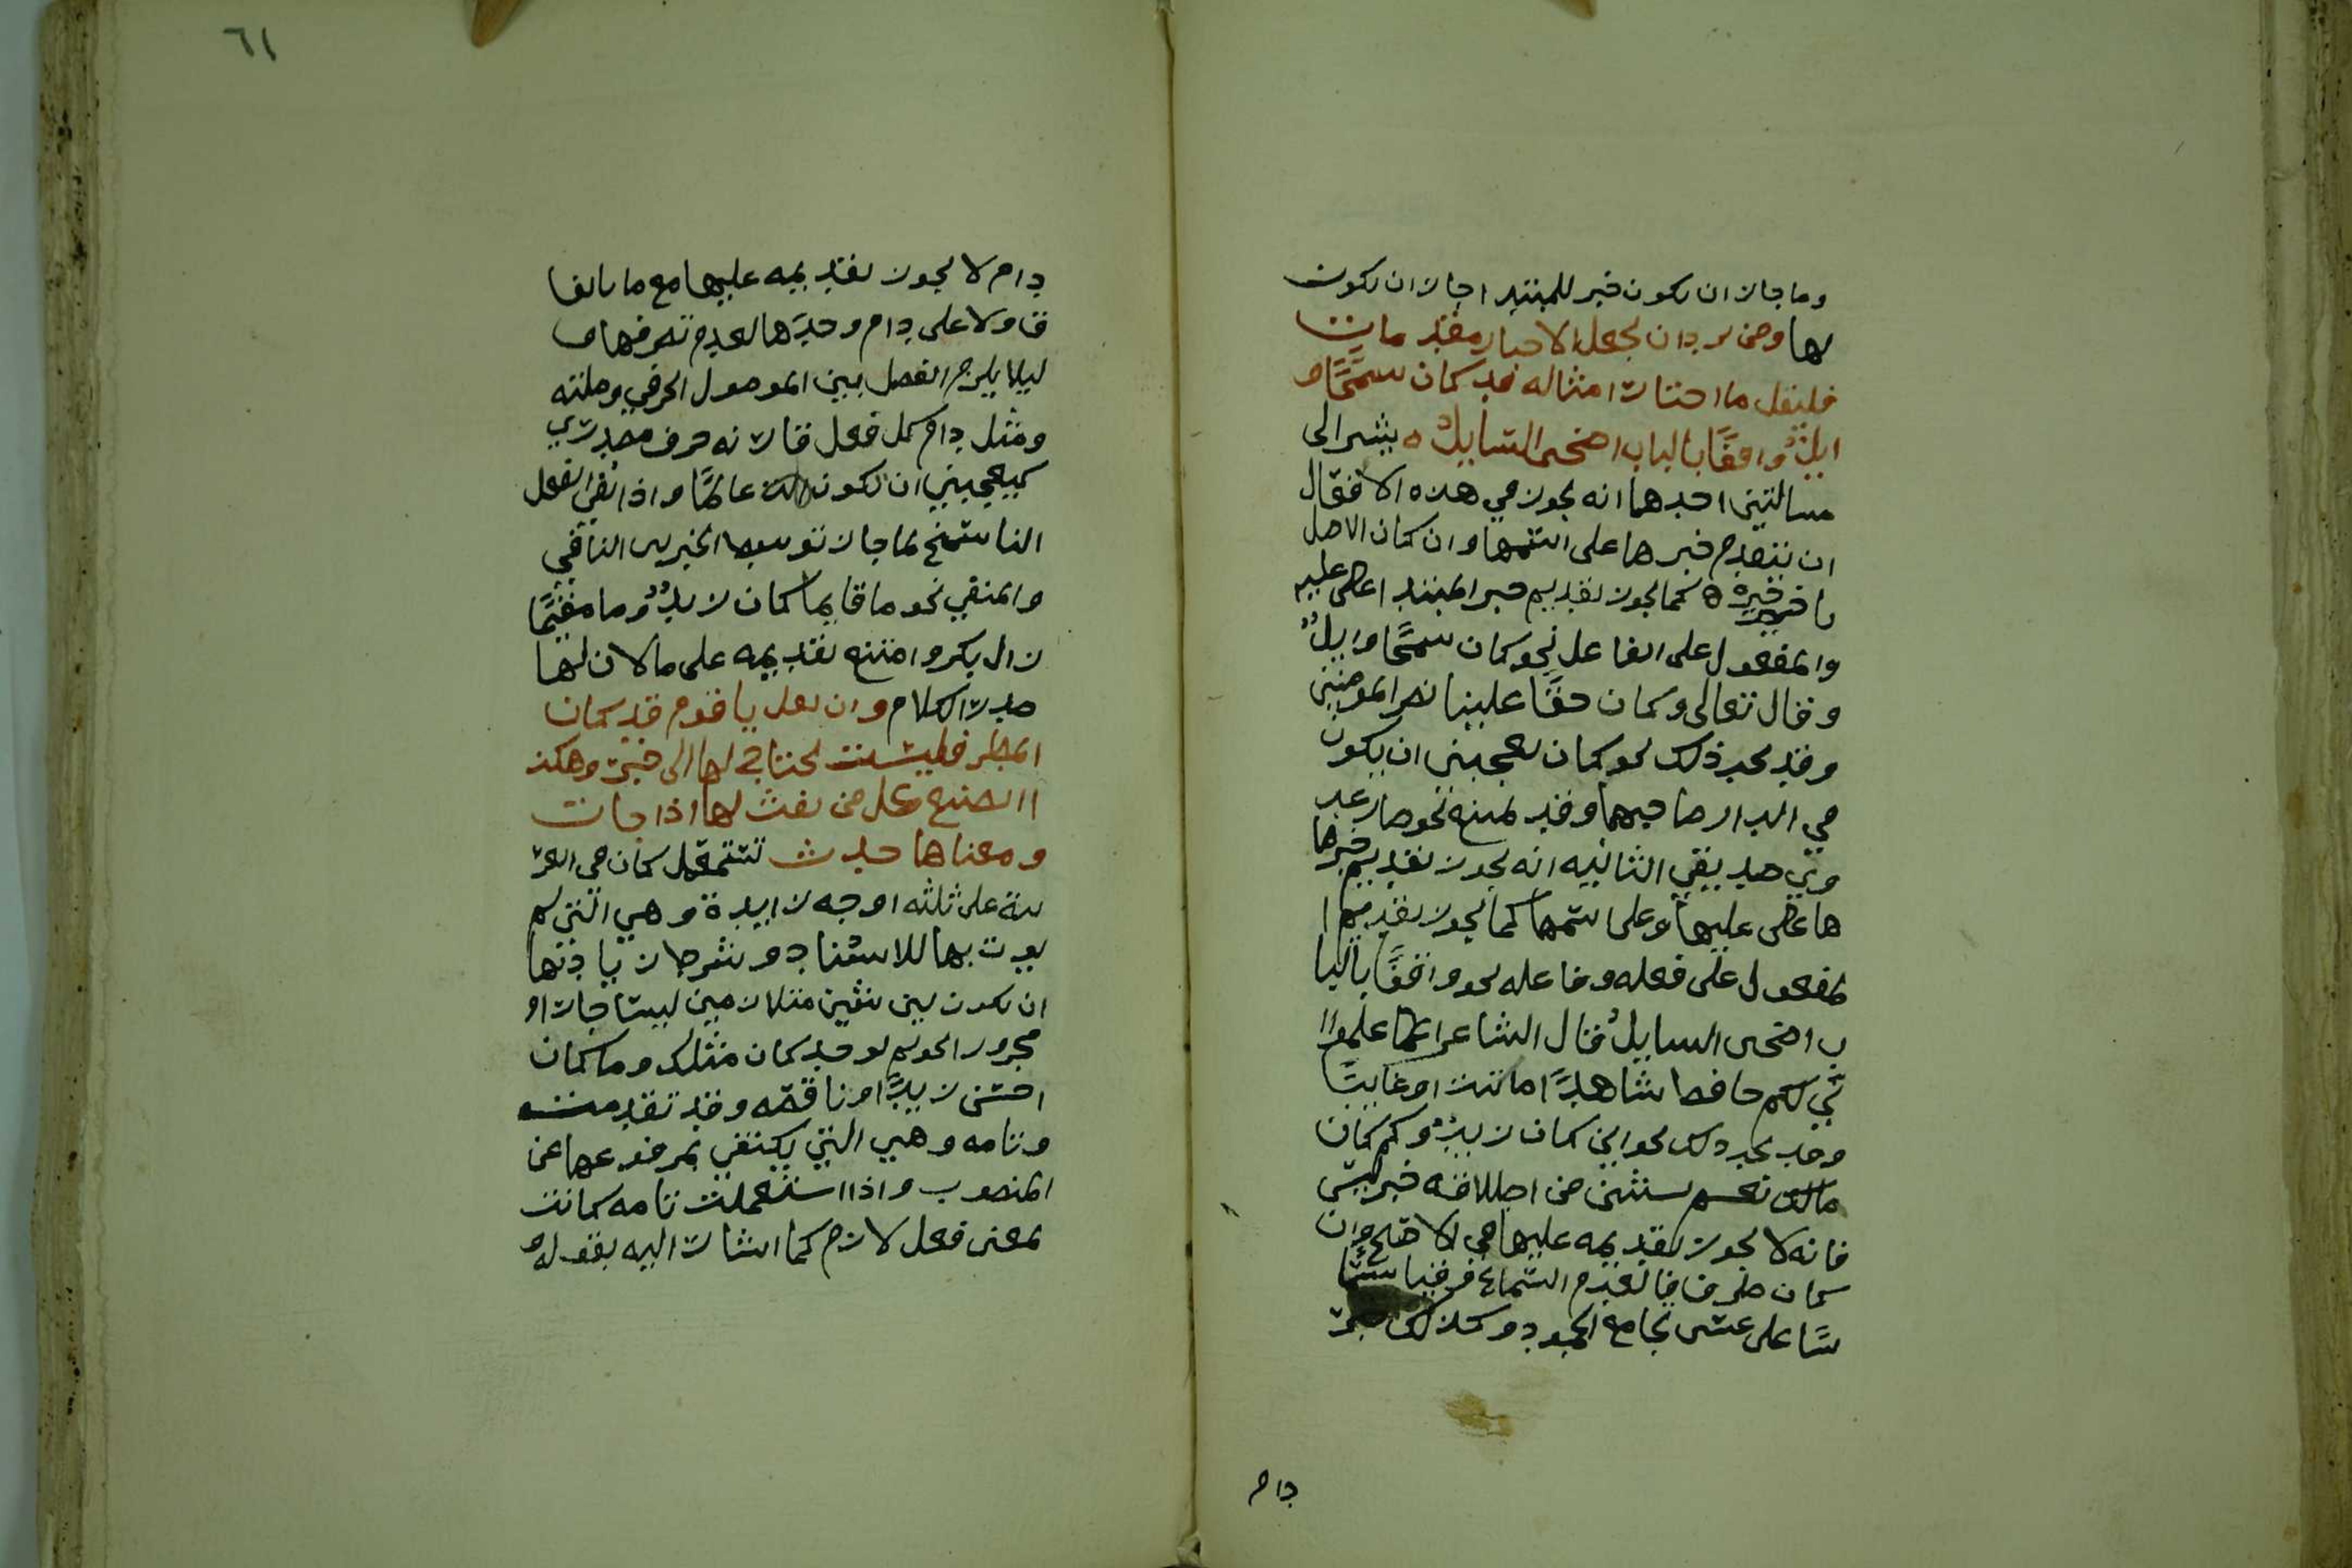 وما جاز ان يكون خبر للمبتدا جاز ان يكون
لها ومن يرد ان يجعل الاخبار مقدمات
فليقل ما اختار امثاله قد كان سمحًا و
ايلٌ واقفًا بالباب اضحى السايلُ ه يشير الى
مسالتين احدهما انه يجوز في هذه الافعال
ان يتقدم خبرها على اسمها وان كان الاصل
تاخيره كما يجوز تقديم خبر المبتدا على عليه
والمفعول على الفاعل نحو كان سمحًا وايلٌ
وقال تعالى وكان حقًا علينا نصر المومنين
وقد يجب ذلك نحو كان يعجبني ان يكون
في الدار صاحبها وقد يمتنع نحو صار عد
وي صديقي الثانيه انه يجوز تقديم خبرها
ها على عليها وعلى اسمها كما يجوز تقديم ا
لمفعول على فعله وفاعله نحو واقفًا بالبا
ب اضحى السايلُ قال الشاعر اعلموا ا
ني لكم حافظ شاهدًا ما كنت او غايبًا
وقد يجب ذلك نحو اين كان زيدٌ وكم كان
مالك نعم يستثنى من اطلاقه خبر ليس
فانه لا يجوز تقديمه عليها في الاصح وان
كان ظرفا لعدم السماع فرقيا
سًا على عسى بجامع الجمود وكذلك خبر
دام
٦١
دام لا يجوز تقديمه عليها مع ما باتفا
ق ولا على دام وحدَها لعدم تصرفها و
ليلا يلزم الفصل بين الموصول الحرفي وصلته
ومثل دام كل فعل قارنه حرف مصدري
كيعجبني ان تكون عالمًا واذا نفي الفعل
الناسخ بما جاز توسيط الخبر بين النافي
والمنفي نحو ما قايما كان زيدٌ وما مقيمًا
زال بكر وامتنع تقديمه على ما لان لها
صدر الكلام وان تقل يا قوم قد كان
المطر فليست تحتاج لها الى خبر وهكذ
ا اصنع كل من نفث لها اذا جات
ومعناها حدث تستعمل كان في العر
بية على ثلثه اوجه زايدة وهي التي لم
يوت بها للاسناد وشرط زيادتها
ان يكون بين شيين متلازمين ليسا جار او
مجرور نحو لم يوجد كان مثلك وما كان
احسن زيدًا وناقصه وقد تقدمت
وتامه وهي التي يكتفي بمرفوعها عن
المنصوب واذا استعملت تامه كانت
بمعنى فعل لازم كما اشار اليه بقوله و